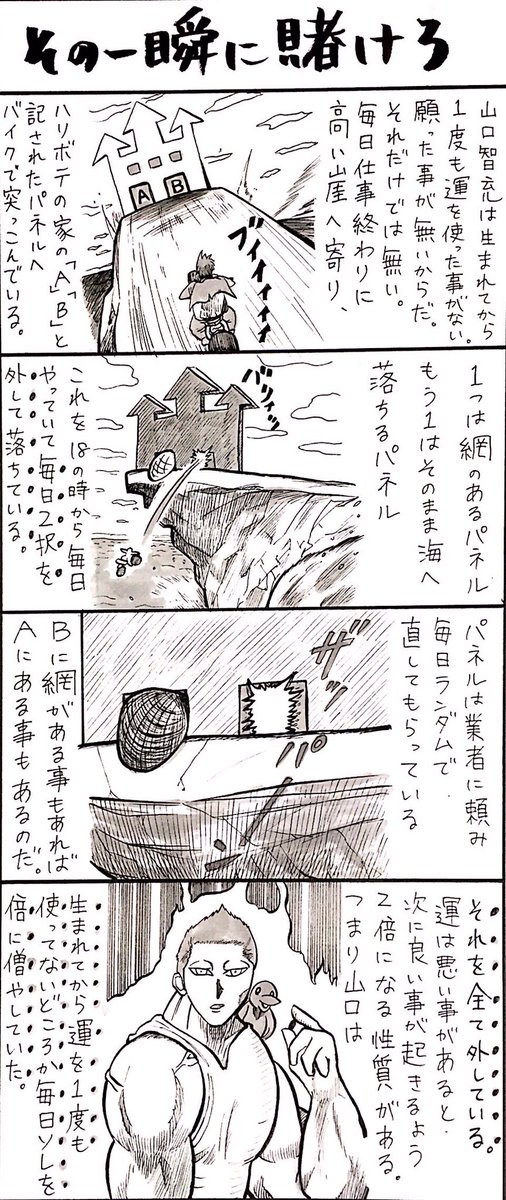 その一瞬に賭けろ
山口智充は生まれてから
1度も運を使った事がない。
願った事が無いからだ。
それだけでは無い。
毎日仕事終わりに
高い崖へ寄り、
A B
ブイイイイイ
ハリボテの家の「A」「B」と
記されたパネルへ
バイクで突っこんでいる。
1つは網のあるパネル
もう1はそのまま海へ
落ちるパネル
バリィッ
これを18の時から毎日
やっていて毎日2択を
外して落ちている。
パネルは業者に頼み
毎日ランダムで
直してもらっている
ザパーン
Bに網がある事もあれば
Aにある事もあるのだ。
それを全て外している。
運は悪い事があると
次に良い事が起きるよう
2倍になる性質がある。
つまり山口は
生まれてから運を1度も
使ってないどころか毎日ソレを
倍に増やしていた。